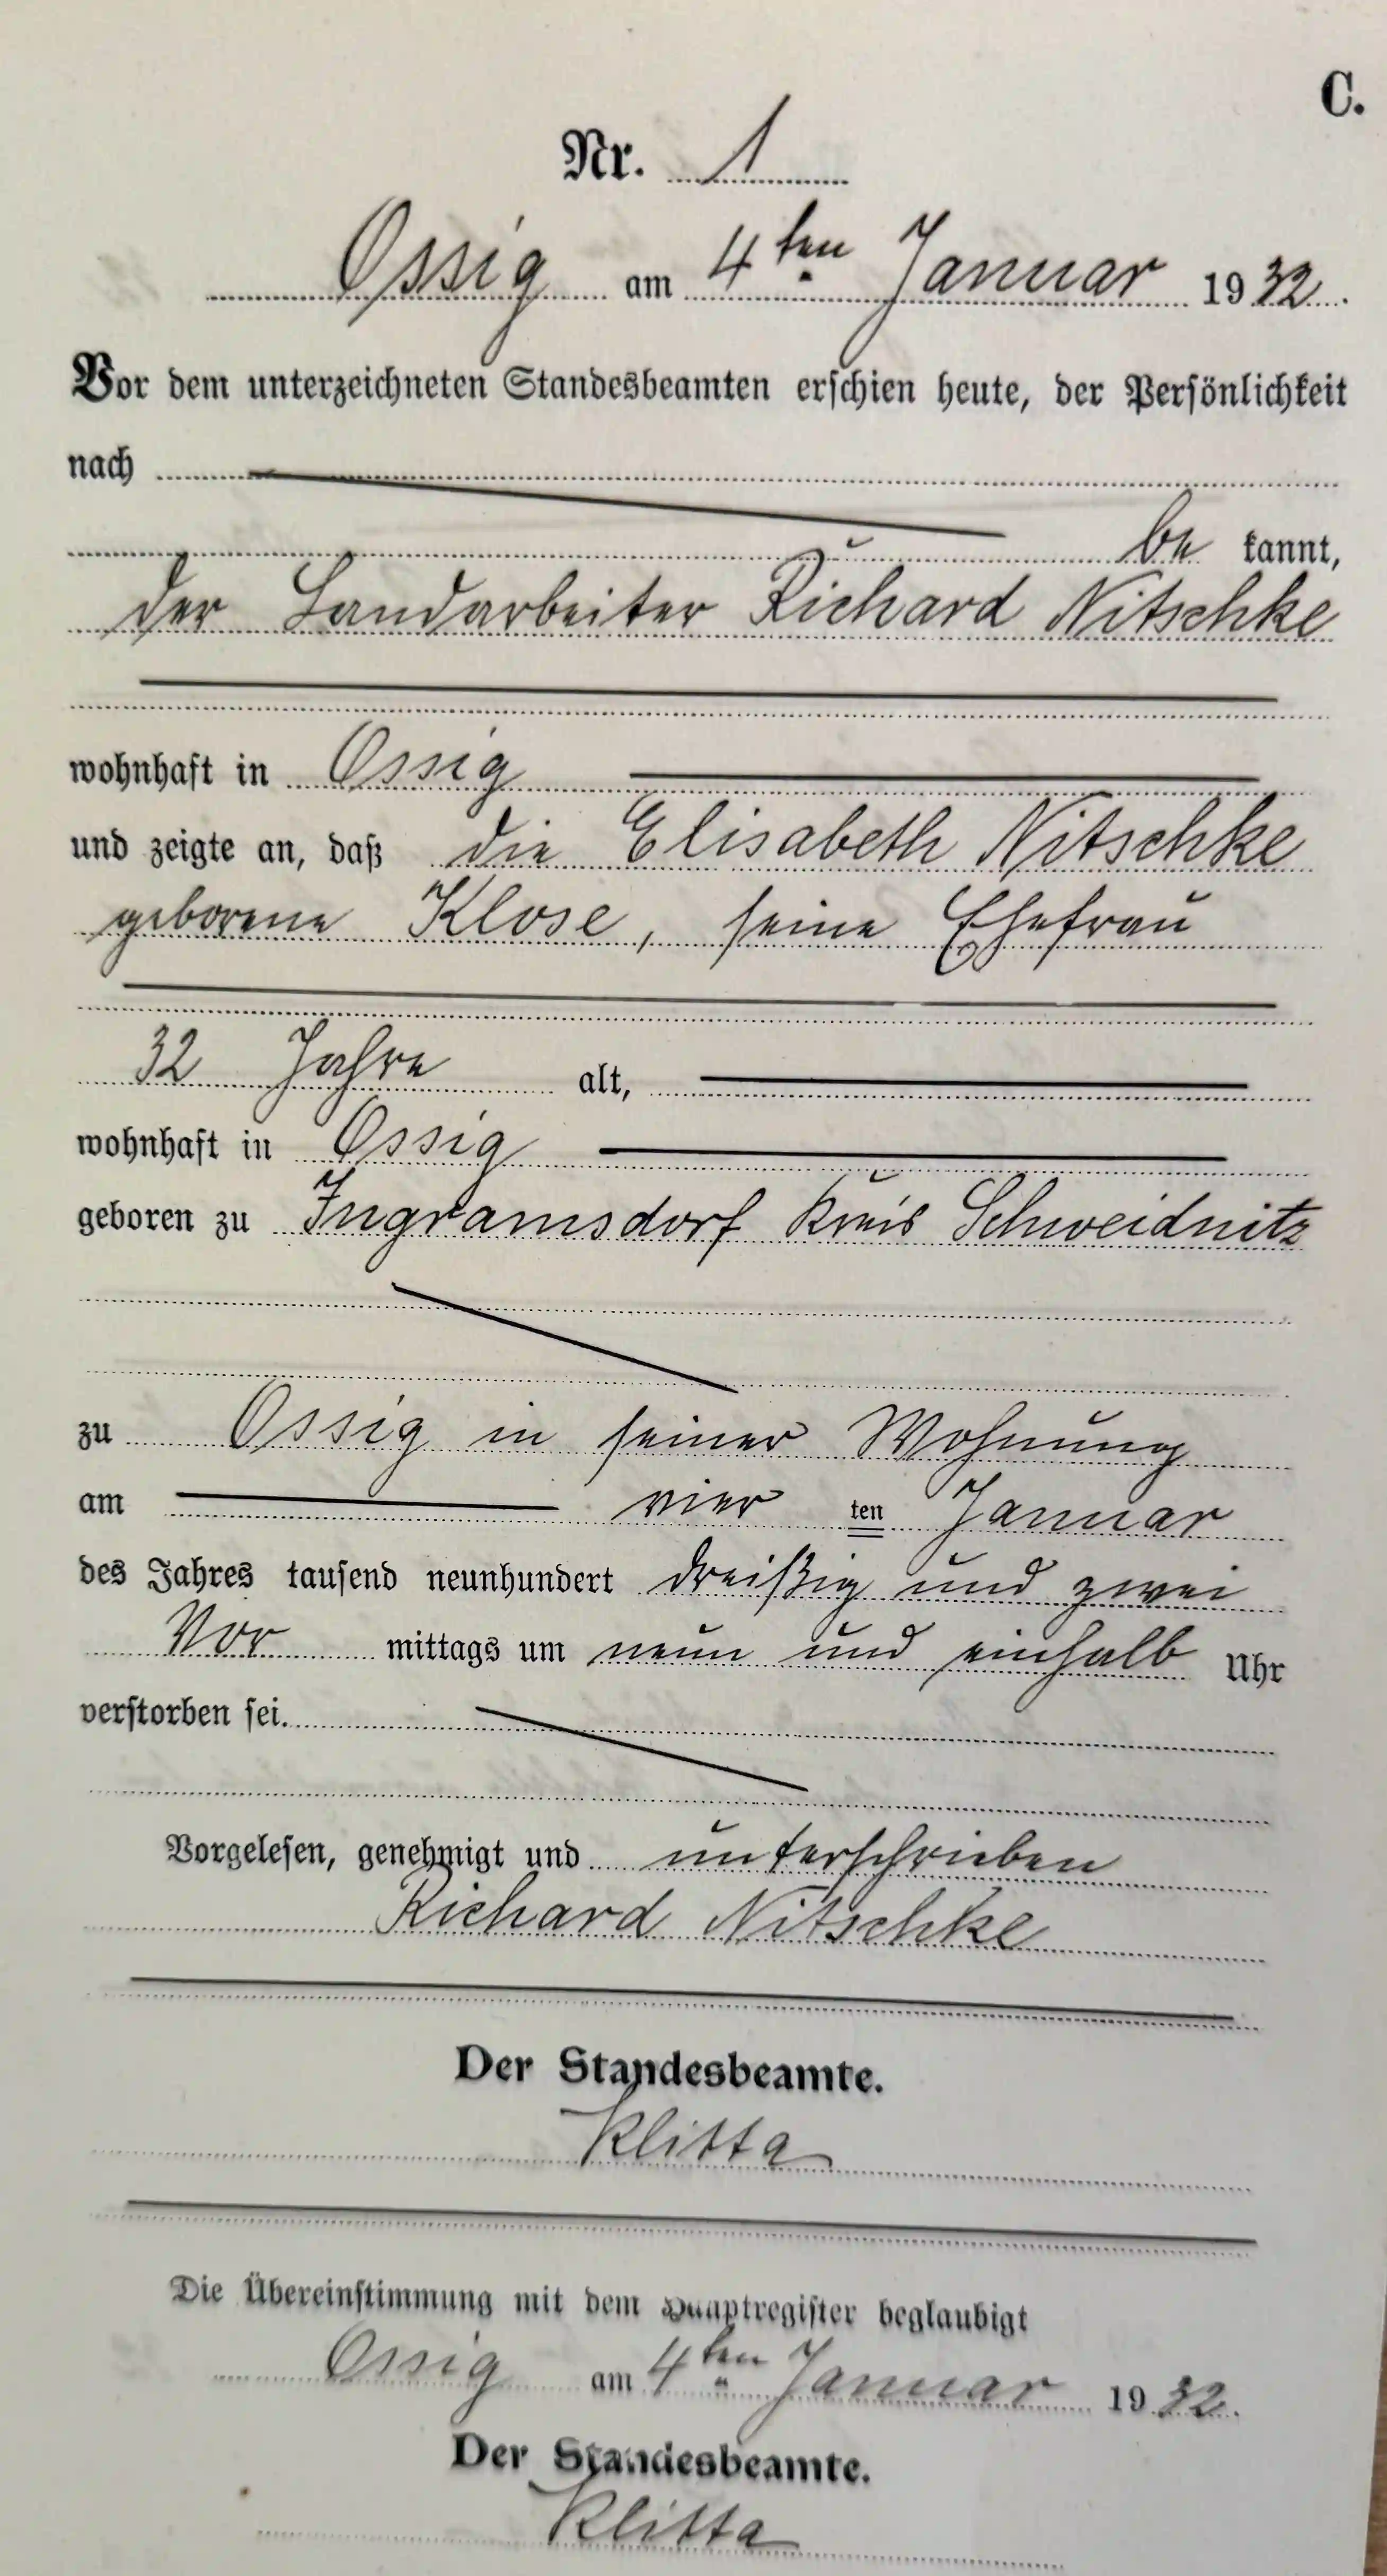 C.
Nr. 1
Ossig am 4ten Januar 1932.
Vor dem unterzeichneten Standesbeamten erschien heute, der Persönlichkeit
nach
be kannt,
der Landarbeiter Richard Nitschke
wohnhaft in Ossig
und zeigte an, daß die Elisabeth Nitschke
geborene Klose, seine Ehefrau
32 Jahre alt,
wohnhaft in Ossig
geboren zu Ingramsdorf Kreis Schweidnitz
zu Ossig in seiner Wohnung
am vier ten Januar
des Jahres tausend neunhundert dreißig und zwei
Vor mittags um neun und einhalb Uhr
verstorben sei.
Vorgelesen, genehmigt und unterschrieben
Richard Nitschke
Der Standesbeamte.
Klitta
Die Übereinstimmung mit dem Hauptregister beglaubigt
Ossig am 4ten Januar 1932.
Der Standesbeamte.
Klitta